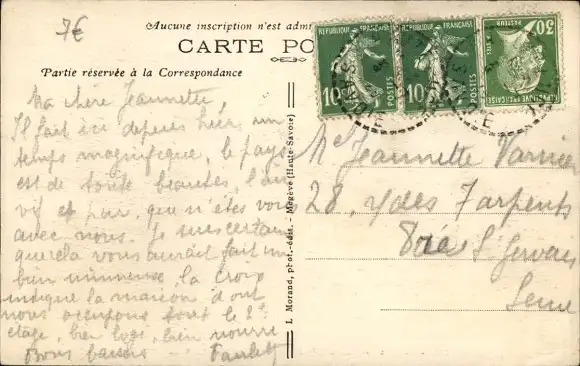 7€
Aucune inscription n'est adm
CARTE PO
Partie réservée à la Correspondance
REPUBLIQUE FRANÇAISE
10c
POSTES
REPUBLIQUE FRANÇAISE
10c
POSTES
30c
PASTEUR
POSTES
REPUBLIQUE FRANÇAISE
Ma chère Jeannette,
Il fait ici depuis hier, un
temps magnifique, le pays
est de toute beautée, l'air
vif et pur, que n'êtes vous
avec nous. Je suis certain
que cela vous aurait fait un
bien immense, la croix
indique la maison d'ont
nous occupons tout le 2e
etage, bien logé, bien nourri
Bons baisers
L. Morand, phot.-édit. - Megève (Haute-Savoie)
Jeannette Varnier
28,
St Gervais
Seine